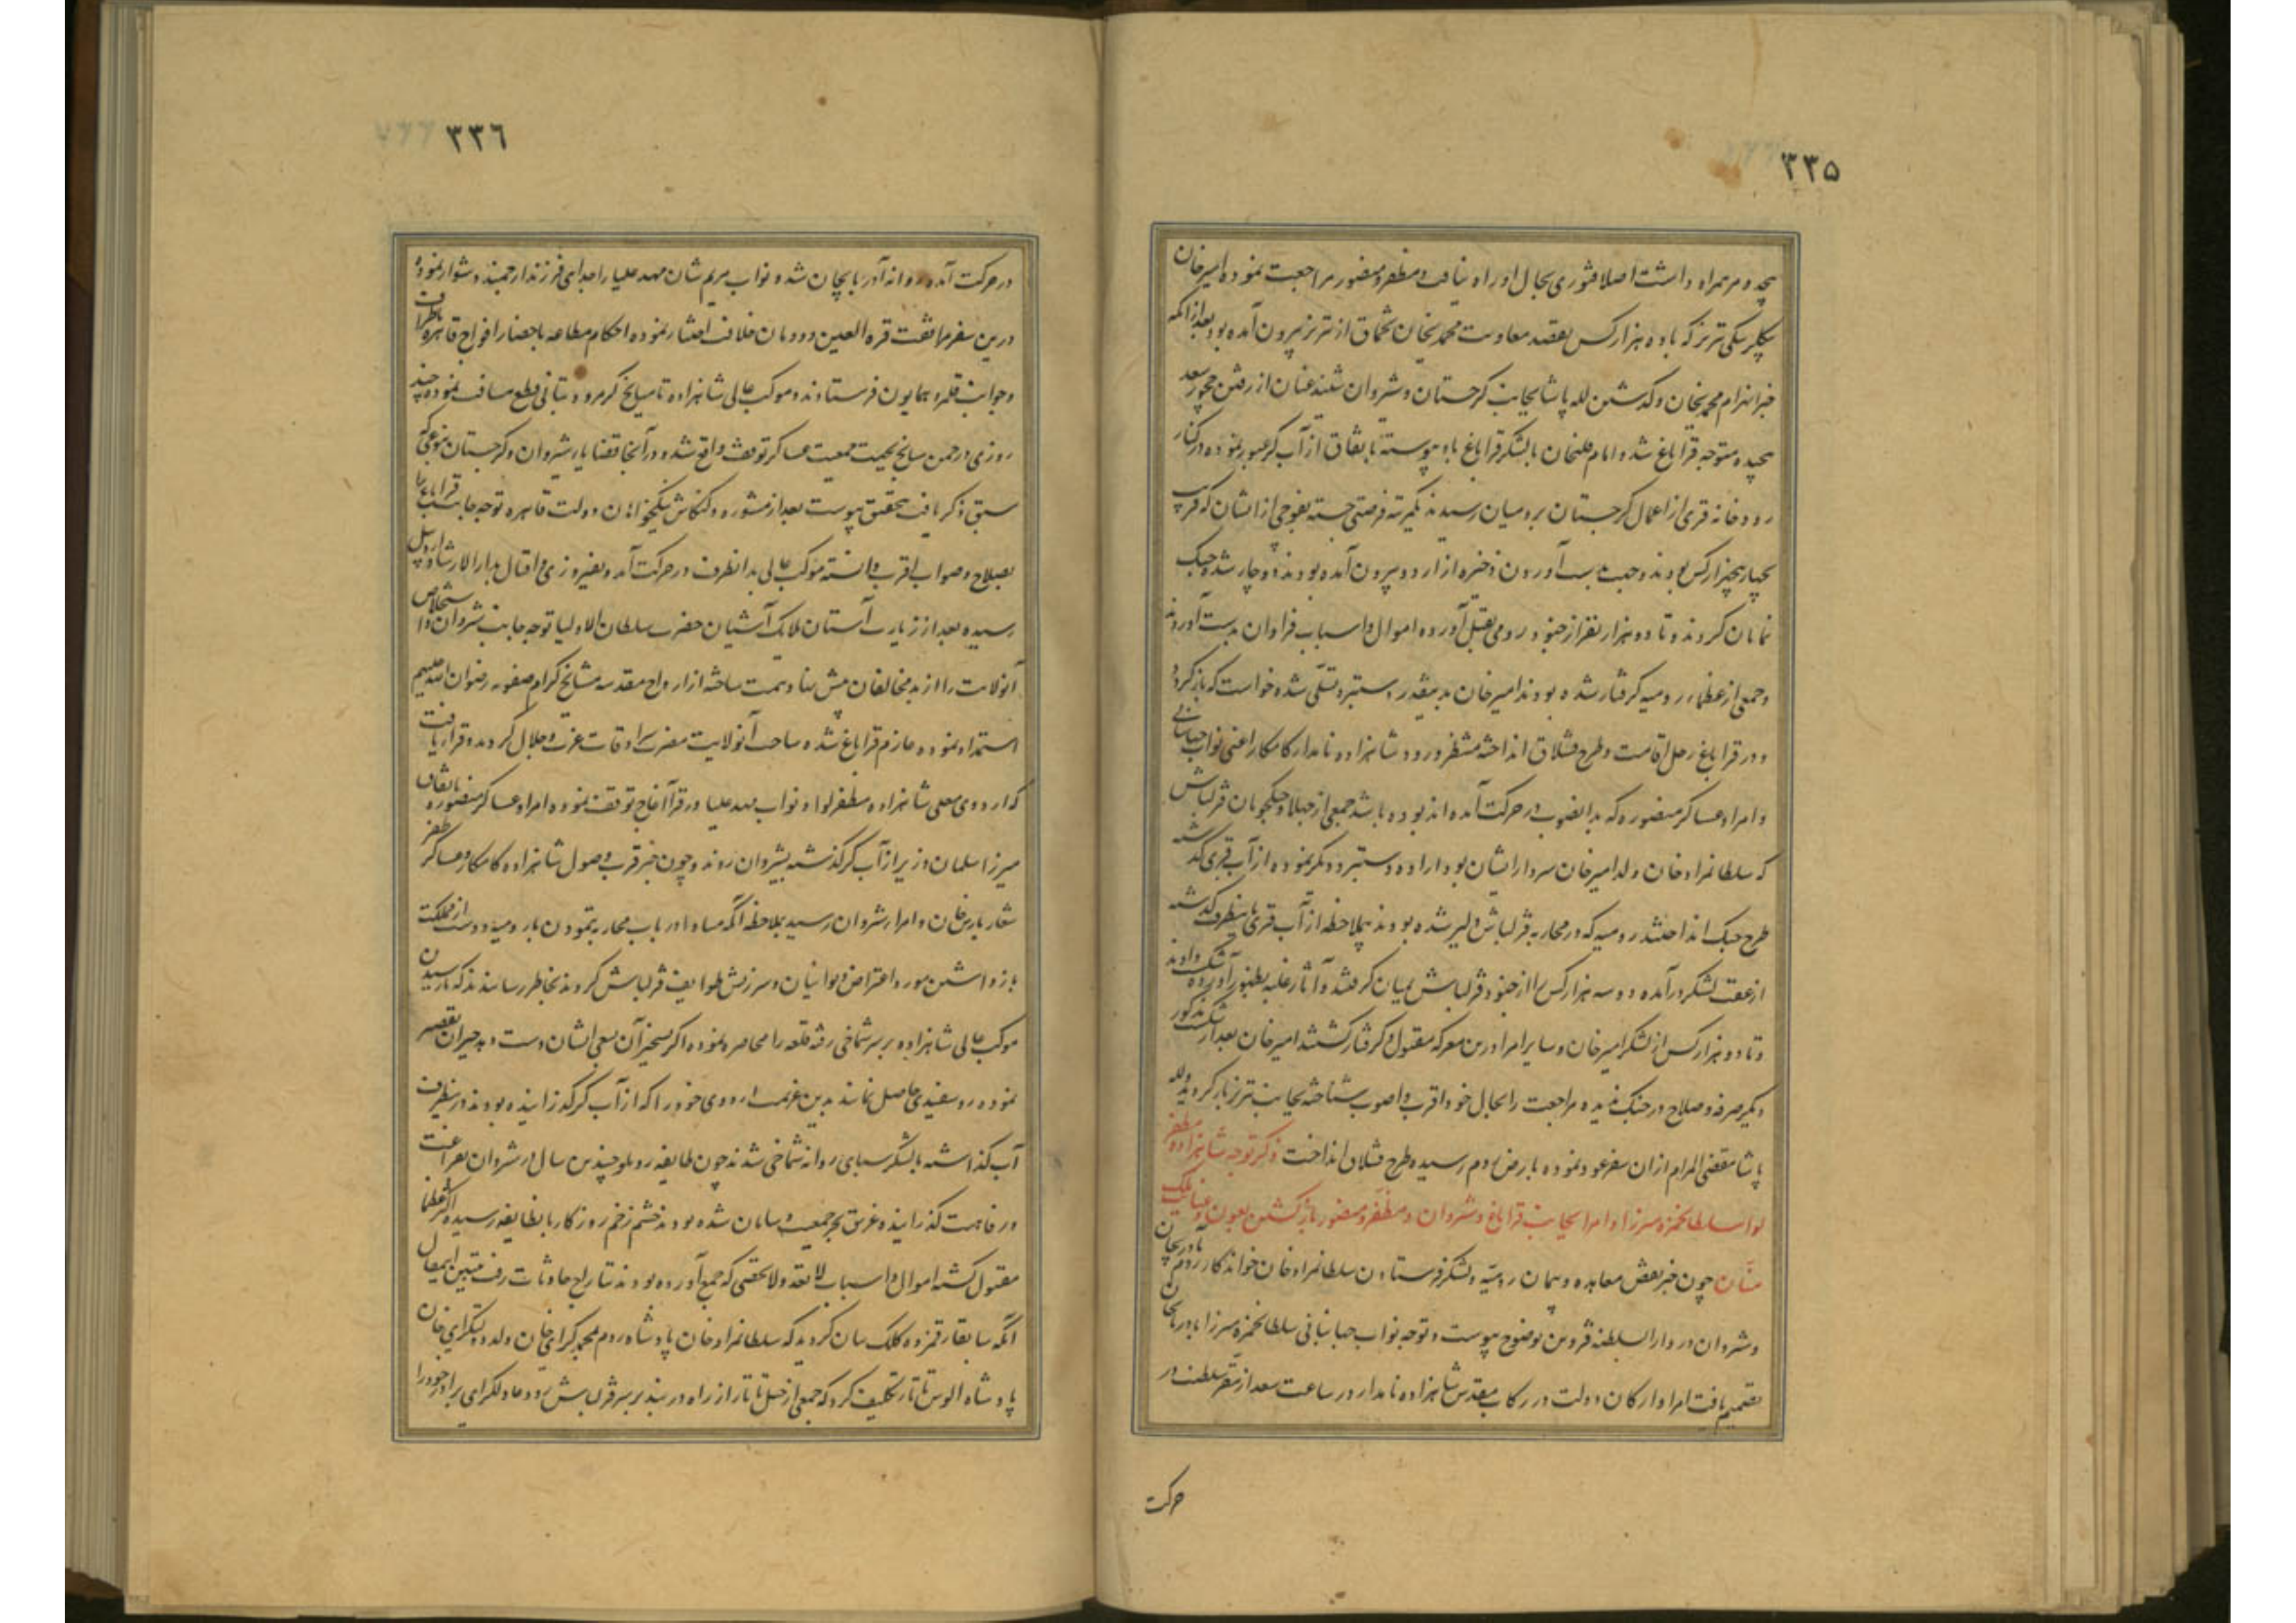 ۳۳۵
هجده مرهمراه داشت اصلا فتوری بحال او راه نیافت و مظفر و منصور مراجعت نموده امیرخان
بیکلربیکی تبریز که با ده هزار کس بقصد معاونت محمدیخان تخماق از تبریز بیرون آمده بود بعد از آنکه
خبر انهزام محمدیخان و گذشتن لله پاشا بجانب گرجستان و شروان شنید عنان از رفتن چخور سعد
پیچیده متوجه قراباغ شد و امام قلیخان با لشکر قراباغ باو پیوسته باتفاق از آب کر عبور نموده در کنار
رودخانه قری از اعمال گرجستان برومیان رسیدند فرصتی جسته بفوجی از ایشان که قریب
بچهار پنجهزار کس بودند و جهت بدست آوردن ذخیره از اردو بیرون آمده بودند دوچار شده جنگ
نمایان کردند و تا دو هزار نفر از جنود رومی بقتل آورده اموال و اسباب فراوان بدست آوردند
و جمعی از عظماء رومیه گرفتار شده بودند امیرخان بدینقدر دستبرد تسلی شده خواست که بازگردد
و در قراباغ رحل اقامت و طرح قشلاق انداخته منتظر ورود شاهزاده نامدار کامکار اعنی نواب جهانبانی
و امراء عساکر منصوره که بدانصوب در حرکت آمده اند بوده باشد جمعی از جهلا و جنگجویان قزلباش
که سلطانمراد خان ولد امیرخان سردار ایشان بود اراده دستبرد دیگر نموده از آب قری گذشته
طرح جنگ انداختند رومیه که در محاربه قزلباش دلیر شده بودند بیملاحظه از آب قری باینطرف گذشته
از عقب لشکر درآمده دو سه هزار کس را از جنود قزلباش بمیان گرفتند و آثار غلبه بظهور آورده شکست دادند
و تا دو هزار کس از لشکر امیرخان و سایر امرا درین معرکه مقتول و گرفتار گشتند امیرخان بعد از شکست مذکور
دیگر صرفه و صلاح در جنگ ندیده مراجعت را بحال خود اقرب و اصوب شناخته بجانب تبریز بازگردید و لله
پاشا مقضی المرام از ان سفر عود نموده بارض روم رسیده طرح قشلاق انداخت ذکر توجه شاهزاده مظفر
لوا سلطانحمزه میرزا و امرا بجانب قراباغ و شروان و مظفر و منصور بازگشتن بعون عنایت ملک
منّان چون خبر نقض معاهده و پیمان رومیّه و لشکر فرستادن سلطانمراد خان خواندکار روم بآذربایجان
و شروان در دارالسلطنه قزوین بوضوح پیوست و توجه نواب جهانبانی سلطانحمزه میرزا بآذربایجان
تصمیم یافت امرا و ارکان دولت در رکاب مقدس شاهزاده نامدار در ساعت سعد از مقر سلطنت در
حرکت
۳۳٦
در حرکت آمده روانه آذربایجان شد و نواب مریم شان مهد علیا را جدایی فرزند ارجمند دشوار نموده
درین سفر مرافقت قره العین دودمان خلافت اختیار نموده احکام مطاعه باحضار افواج قاهره باطراف
و جوانب قلمرو همایون فرستادند و موکب عالی شاهزاده تا میانج گرمرود بتأنی قطع مسافت نموده چند
روزی در چمن میانج بجهت جمعیت عساکر توقف واقع شد و در آنجا قضایاء شروان و گرجستان بنوعی که
سبق ذکر یافت بتحقیق پیوست بعد از مشوره و کنکاش نیکخواهان دولت قاهره توجه جانب قراباغ را
بصلاح و صواب اقرب دانسته موکب عالی بدانطرف در حرکت آمد و بفیروزی و اقبال بدارالارشاد اردبیل
رسیده بعد از زیارت آستان ملایک آشیان حضرت سلطان الاولیا توجه جانب شروان و استخلاص
آنولایت را از ید مخالفان پیش نهاد همت ساخته از ارواح مقدسه مشایخ کرام صفویه رضوان الله علیهم
استمداد نموده عازم قراباغ شده ساحت آنولایت مضرب سرادقات عزت و جلال گردید و قرار یافت
که اردوی معلی شاهزاده مظفر لوا و نواب مهد علیا در قراآغاج توقف نموده امراء عساکر منصوره باتفاق
میرزا سلمان وزیر از آب کر گذشته بشروان روند و چون خبر قرب وصول شاهزاده کامکار و عساکر ظفر
شعار بارس خان و امراء شروان رسید بملاحظه آنکه مبادا در باب محاربه ننمودن با رومیه و دست از مملکت
بازداشتن مورد اعتراض دیوانیان و سرزنش طوایف قزلباش گردند بخاطر رسانیدند که تا رسیدن
موکب عالی شاهزاده بر سر شماخی رفته قلعه را محاصره نموده اگر تسخیر آن بسعی ایشان دست دهد جبران تقصیر
نموده روسفیدی حاصل نمایند بدین عزیمت اردوی خود را که از آب کر گذرانیده بودند در اینطرف
آب گذاشته با لشکر سپاهی روانه شماخی شدند چون طایفه روملو چندین سال در شروان بفراغت
و رفاهیت گذرانیده غریق بحر جمعیت و سامان شده بودند چشم زخم روزگار بانطایفه رسیده اکثر عظما
مقتول گشته اموال و اسباب لا یعد و لا یحصی که جمع آورده بودند بتاراج حادثات رفت تبیین اینمقال
آنکه سابقا رقمزده کلک بیان گردید که سلطانمراد خان پادشاه روم بمحمد کرای خان ولد دولتکرای خان
پادشاه الوس تاتار تکلیف کرد که جمعی از خیل تاتار از راه دربند بر سر قزلباش رود و عادلکرای برادر خود را